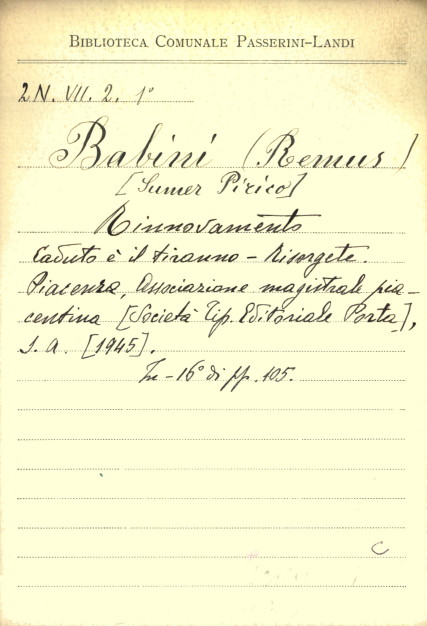 BIBLIOTECA COMUNALE PASSERINI-LANDI
2N. VII. 2. 1°
Babini (Remus)
[Sumer Pirico]
Rinnovamento
Caduto è il tiranno - Risorgete.
Piacenza, Associazione magistrale pia-
centina [Società Tip. Editoriale Porta],
s. a. [1945].
In-16° di pp. 105.
C